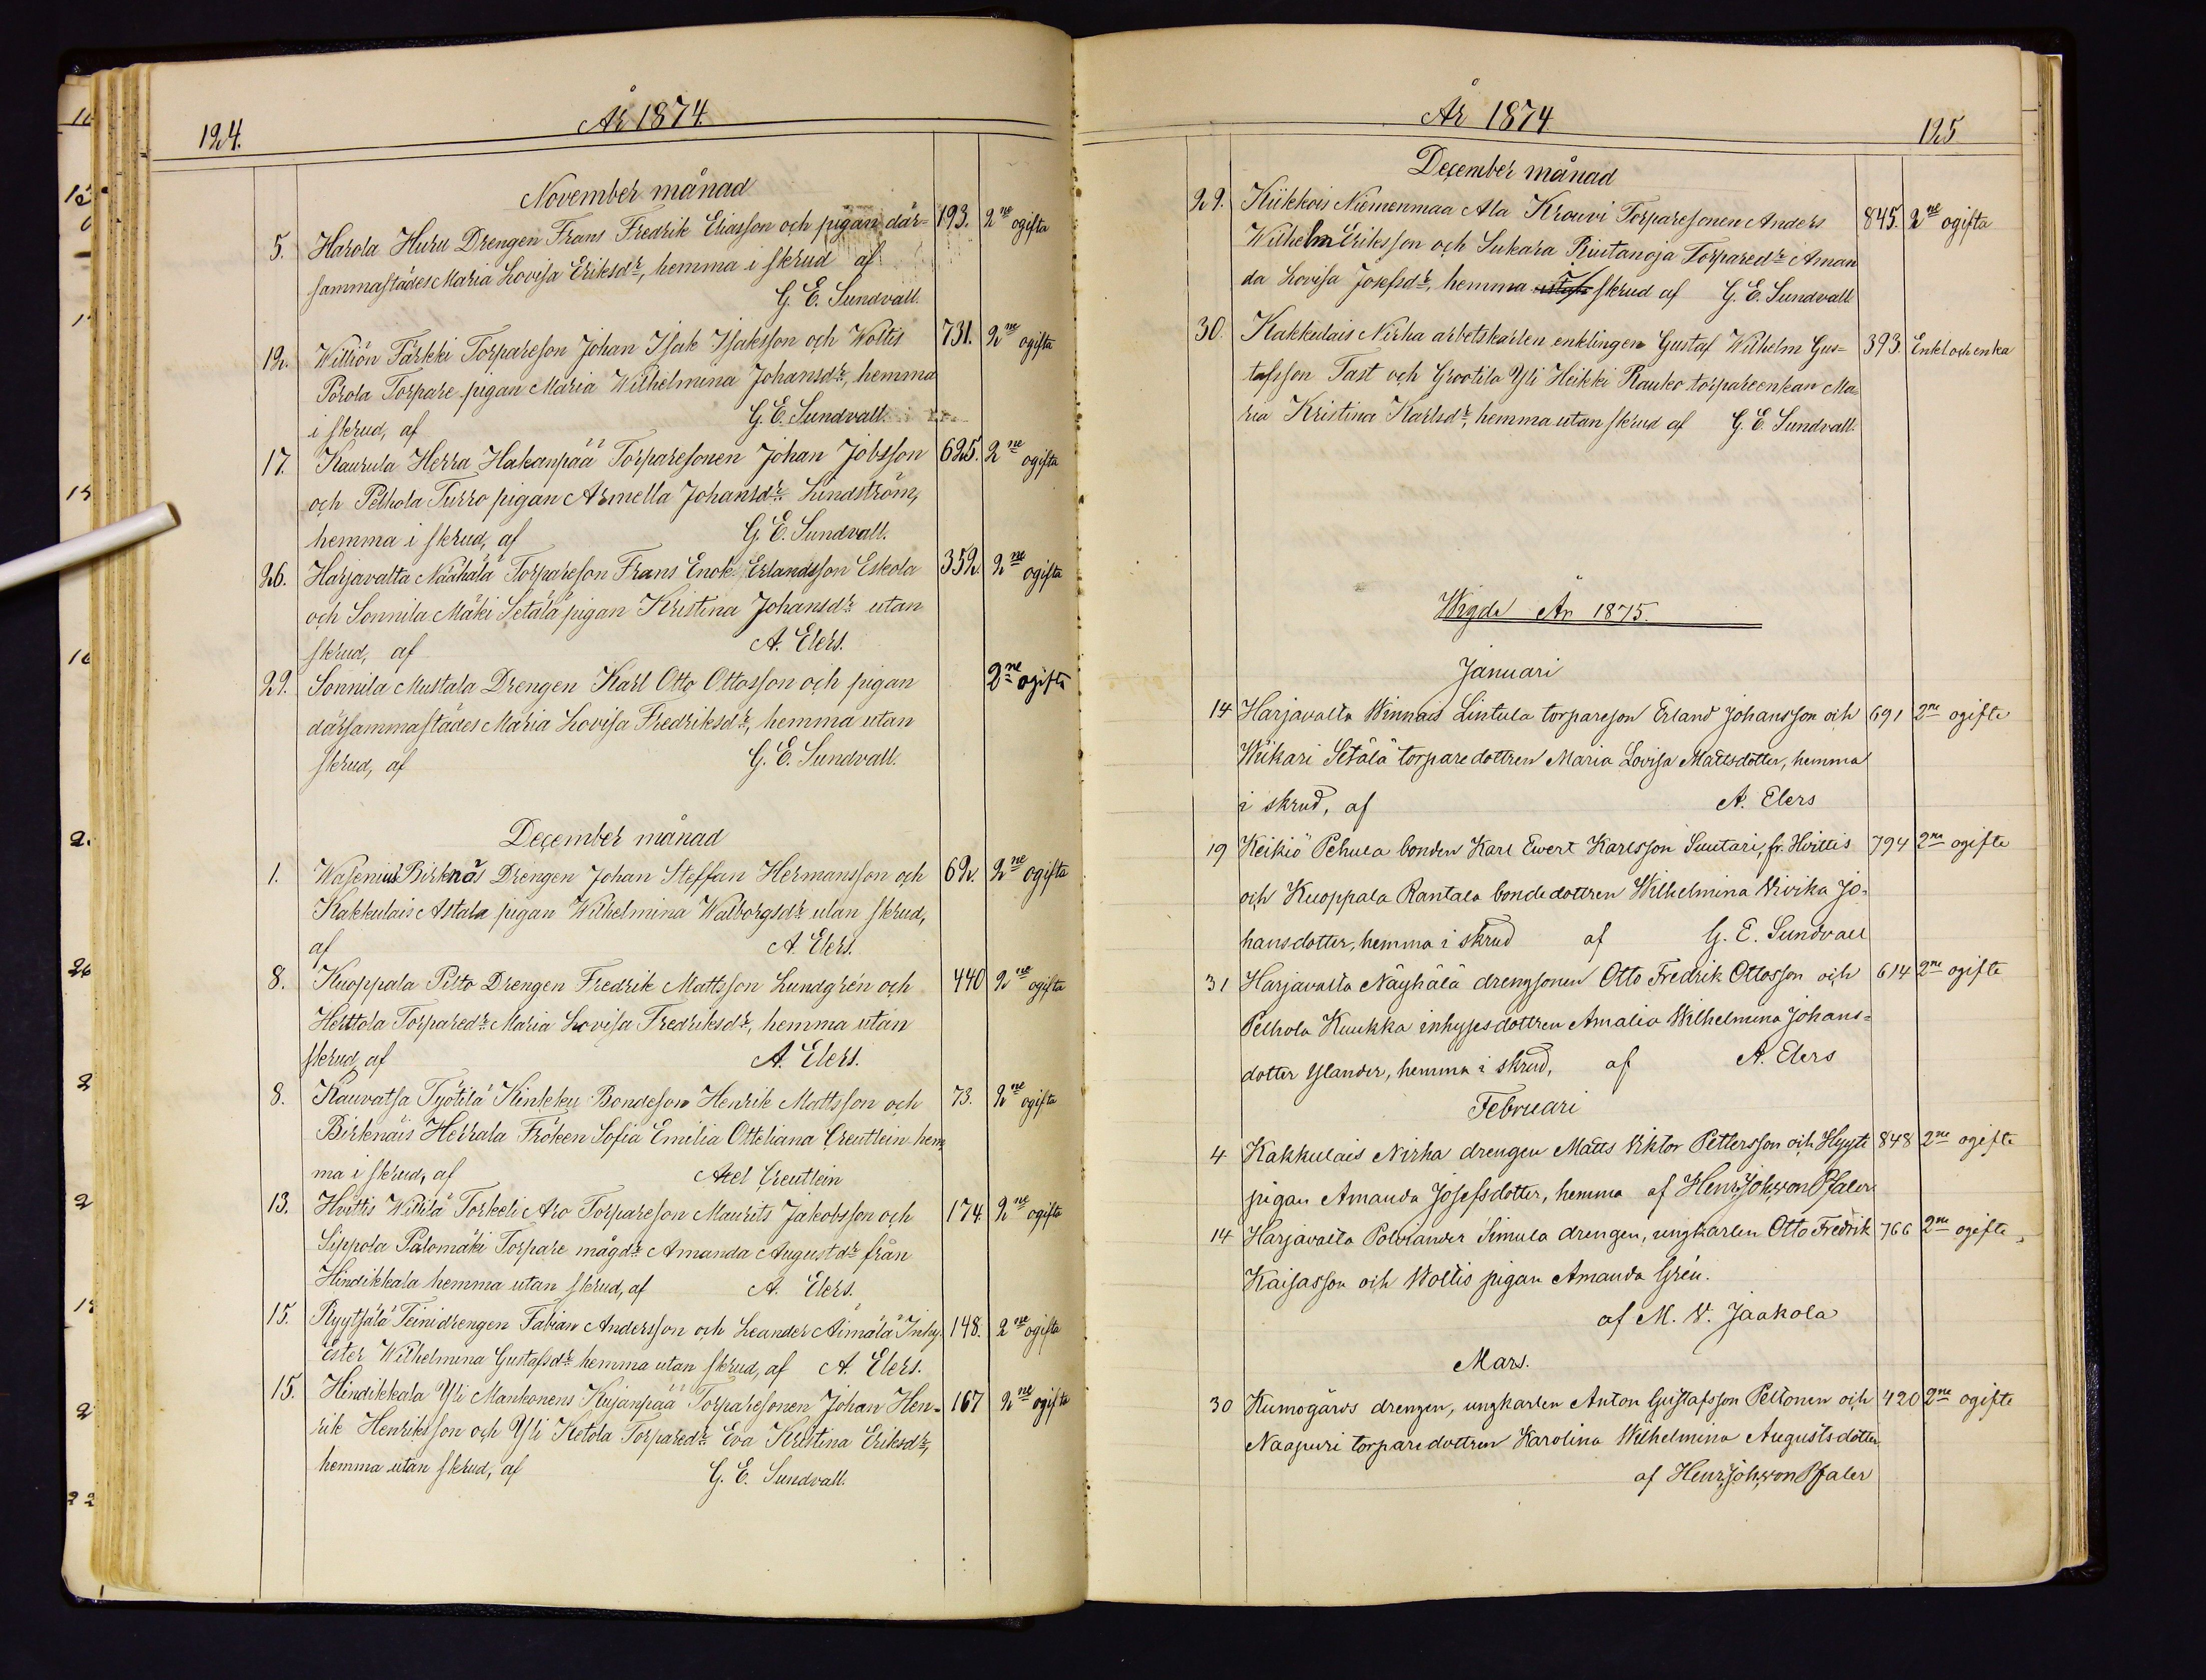 124.
År 1874.
November månad
5. Harola Huru Drengen Frans Fredrik Eliasson och pigan där= 193. 2ne ogifta
sammastädes Maria Lovisa Eriksdr, hemma i skrud af
G. E. Sundvall.
12. Williön Färkki Torpareson Johan Isak Isaksson och Woltis 731. 2ne ogifta
Porola Torpare pigan Maria Wilhelmina Johansdr, hemma
i skrud, af G. E. Sundvall.
17. Kaurula Herra Hakanpää Torparesonen Johan Jobsson 625. 2ne ogifta
och Pelhola Turro pigan Armella Johansdr Lindström,
hemma i skrud, af G. E. Sundvall.
26. Harjavalta Näähälä Torpareson Frans Enok Erlandsson Eskola 352. 2ne ogifta
och Sonnila Mäki Setälä pigan Kristina Johansdr utan
skrud, af A. Elers.
29. Sonnila Mustala Drengen Karl Otto Ottosson och pigan 2ne ogifta
därsammastädes Maria Lovisa Fredriksdr, hemma utan
skrud, af G. E. Sundvall.
December månad
1. Wasenius Birknäs Drengen Johan Steffan Hermansson och 62. 2ne ogifta
Kakkulais Astala pigan Wilhelmina Walborgsdr utan skrud,
af A. Elers.
8. Kuoppala Pilto Drengen Fredrik Mattsson Lundgrén och 440 2ne ogifta
Herttola Torparedr Maria Lovisa Fredriksdr, hemma utan
skrud, af A. Elers.
8. Kauvatsa Työtilä Kinkku Bondeson Henrik Mattsson och 73. 2ne ogifta
Birknäis Herrala Fröken Sofia Emilia Otteliana Creutlein hem,
ma i skrud, af Axel Creutlein
13. Hvittis Willilä Torkeli Aro Torpareson Maurits Jakobsson och 174. 2ne ogifta
Sippola Palomäki Torpare mågdr Amanda Augustdr från
Hindikkala hemma utan skrud, af A. Elers.
15. Ryytsälä Teini drengen Fabian Andersson och Leander Äimälä Inhy. 148. 2ne ogifta
Ester Wilhelmina Gustafsdr hemma utan skrud, af A. Elers.
15. Hindikkala Yli Mankonens Kujanpää Torparesonen Johan Hen- 167 2ne ogifta
rik Henriksson och Yli Ketola Torparedr Eva Kristina Eriksdr,
hemma utan skrud, af G. E. Sundvall.
År 1874
125
December månad
29. Kiikkois Niemenmaa Ala Krouvi Torparesonen Anders 845. 2ne ogifta
Wilhelm Eriksson och Sukara Riutanoja Torparedr Aman
da Lovisa Josefsdr, hemma i skrud af G. E. Sundvall
30. Kakkulais Nirha arbetskarlen enklingen Gustaf Wilhelm Gus= 393. Enkl. och enka
tafsson Tast och Grootila Yli Heikki Rauko torpareenkan Ma=
ria Kristina Karlsdr, hemma utan skrud af G. E. Sundvall.
Wigda År 1875.
Januari
14 Harjavalta Winnais Lintula torpareson Erland Johansson och 691 2ne ogifte
Wiikari Setälä torparedottren Maria Lovisa Mattsdotter, hemma
i skrud, af A. Elers
19 Keikiö Pehula bonden Karl Ewert Karlsson Suutari, fr. Hvittis 794 2ne ogifte
och Kuoppala Rantala bondedottren Wilhelmina Vivika Jo=
hansdotter, hemma i skrud af G. E. Sundvall
31 Harjavalta Näyhälä drengsonen Otto Fredrik Ottosson och 614 2ne ogifte
Pelhola Kuukka inhysesdottren Amalia Wilhelmina Johans=
dotter Ylander, hemma i skrud, af A. Elers
Februari
4 Kakkulais Nirha drengen Matts Viktor Pettersson och Hyyti 848 2ne ogifte
pigan Amanda Josefsdotter, hemma af Henr. Joh. von Pfaler
14 Harjavalta Polviander Simula drengen, ungkarlen Otto Fredrik 766 2ne ogifte
Kaisasson och Woltis pigan Amanda Grén.
af M. V. Jaakola
Mars.
30 Kumogårds drengen, ungkarlen Anton Gustafsson Peltonen och 420 2ne ogifte
Naapuri torparedottren Karolina Wilhelmina Augustsdotter
af Henr. Joh. von Pfaler